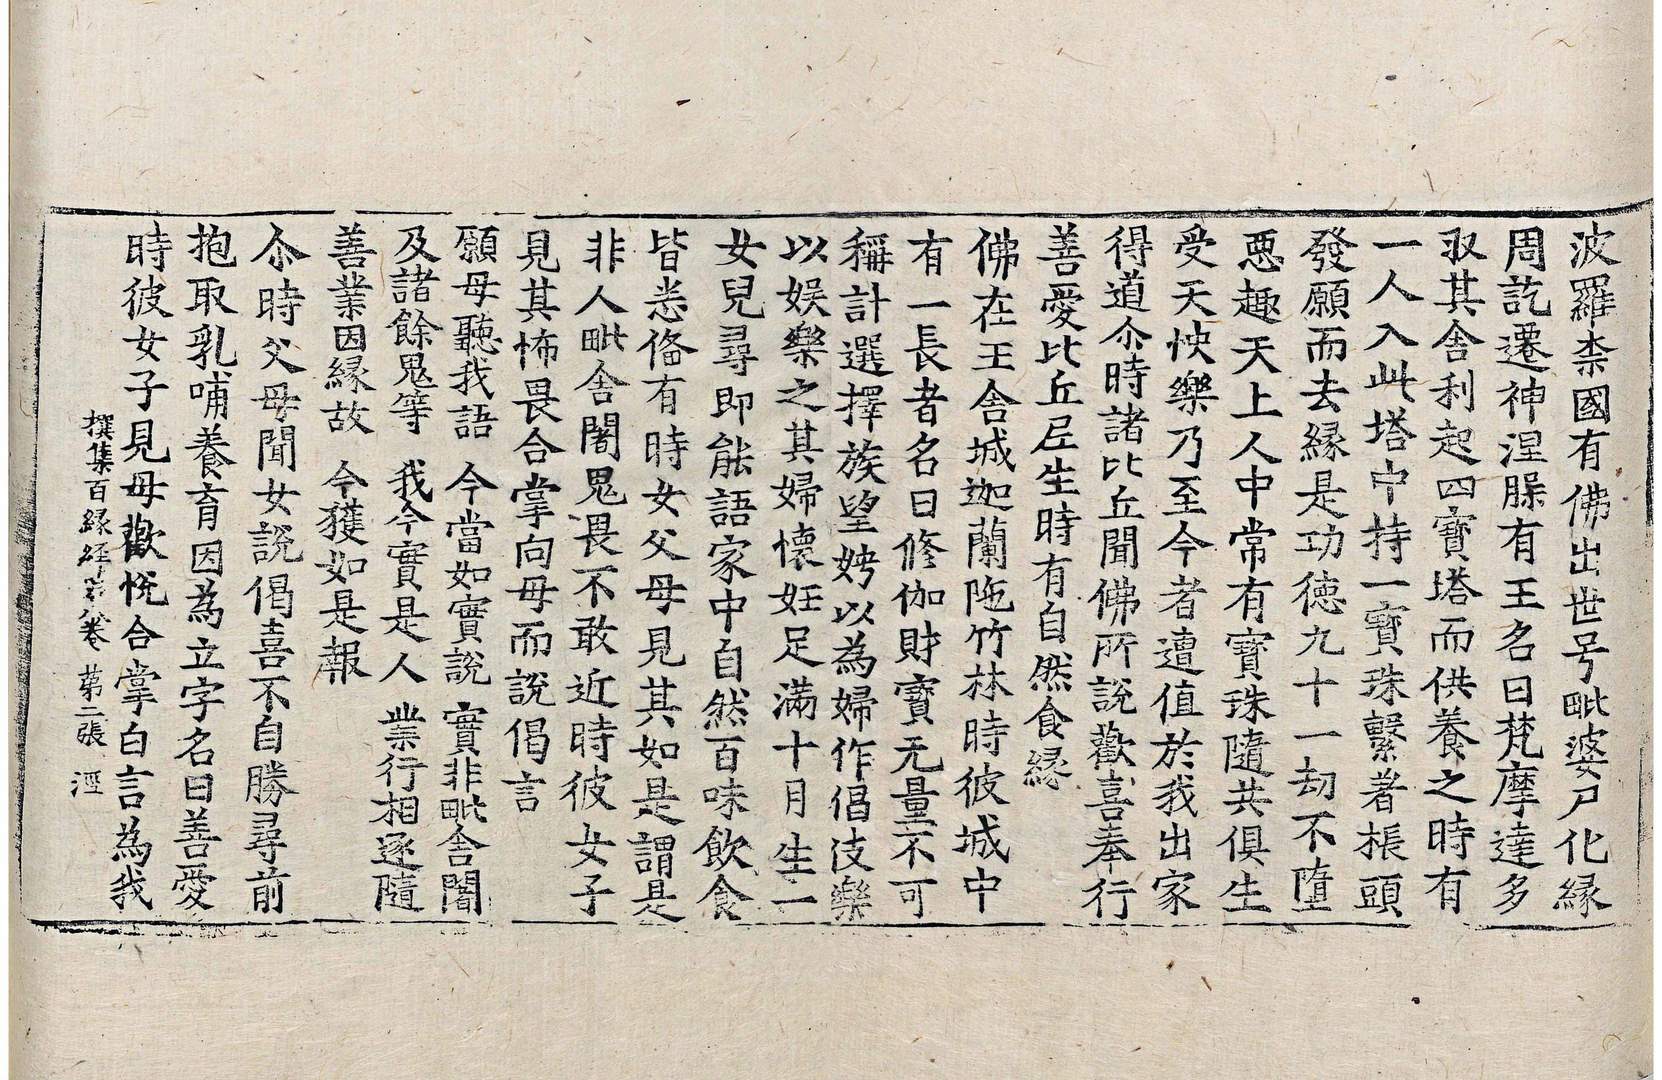 波羅柰國有佛出世号毗婆尸化緣
周訖遷神涅脲有王名曰梵摩達多
収其舍利起四寶塔而供養之時有
一人入此塔中持一寶珠繫著棖頭
發願而去緣是功德九十一劫不墮
惡趣天上人中常有寶珠隨共俱生
受天怏樂乃至今者遭值於我出家
得道尒時諸比丘聞佛所說歡喜奉行
善愛比丘尼生時有自然食緣
佛在王舍城迦蘭陁竹林時彼城中
有一長者名曰修伽財寶无量不可
稱計選擇族望娉以為婦作倡伎樂
以娛樂之其婦懷妊足滿十月生一
女兒尋即能語家中自然百味飲食
皆悉俻有時女父母見其如是謂是
非人毗舍闍鬼畏不敢近時彼女子
見其怖畏合掌向母而說偈言
願母聽我語 今當如實說 實非毗舍闍
及諸餘鬼等 我今實是人 業行相逐隨
善業因緣故 今獲如是報
尒時父母聞女說偈喜不自勝尋前
抱取乳哺養育因為立字名曰善愛
時彼女子見母歡悅合掌白言為我
撰集百緣經第卷 第二張 涇